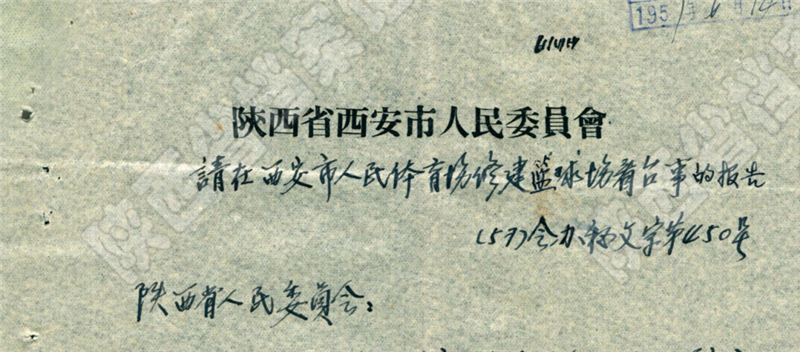 195
陕西省西安市人民委員會
請在西安市人民体育場修建籃球場看台事的报告
(57)会办
文字第450号
陕西省人民委員会：
陕西省档案